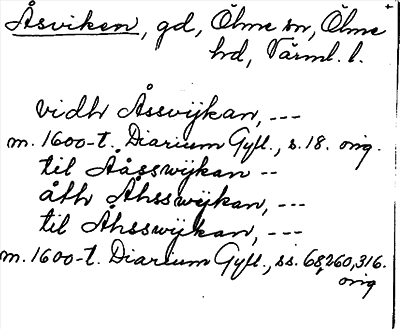 Åsviken, gd, Ölme sn, Ölme
hd, Värml. l.
vidh Åssvijkan, ---
m. 1600-t. Diarium Gyll., s. 18. orig.
til Aåsswijkan --
åth Åhsswijkan, ---
til Åhsswijkan, ---
m. 1600-t. Diarium Gyll., ss. 68, 260, 316.
orig